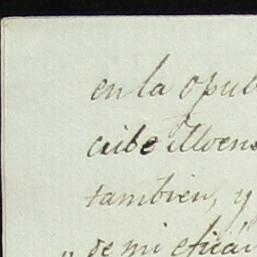 en la opub
cibe Mons
tambien, y
" de mi eficac